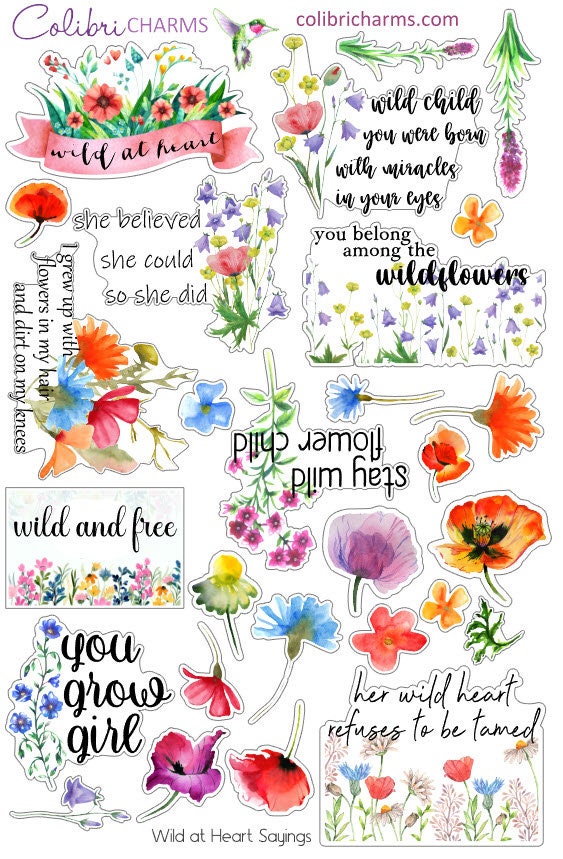 Colibri CHARMS
colibricharms.com
wild at heart
wild child
you were born
with miracles
in your eyes
she believed
she could
so she did
you belong
among the
wildflowers
I grew up with
flowers in my hair
and dirt on my knees
stay wild
flower child
wild and free
you
grow
girl
her wild heart
refuses to be tamed
Wild at Heart Sayings